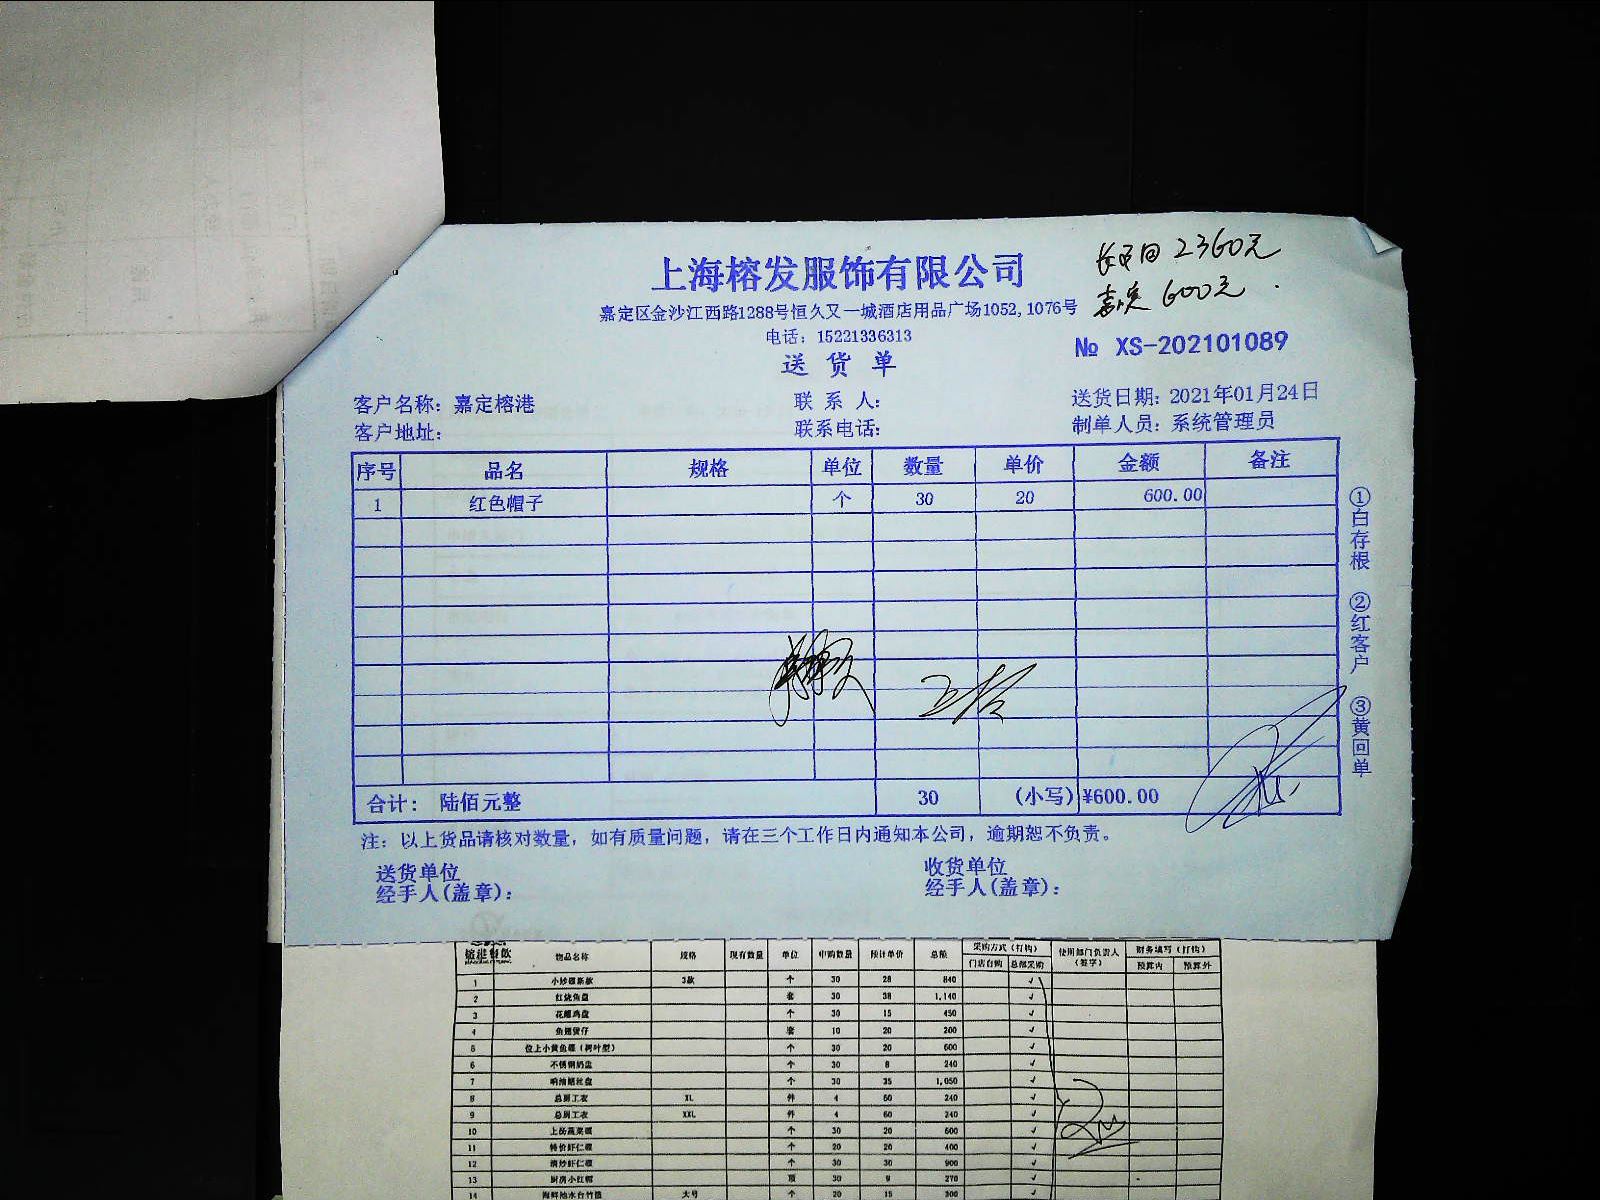 上海榕发服饰有限公司
嘉定区金沙江西路1288号恒久又一城酒店用品广场1052, 1076号
电话: 15221336313
送 货 单
2360元
嘉定 600元
№ XS-202101089
客户名称: 嘉定榕港 联 系 人: 送货日期: 2021年01月24日
客户地址: 联系电话: 制单人员: 系统管理员
序号 品名 规格 单位 数量 单价 金额 备注
1 红色帽子 个 30 20 600.00
合计: 陆佰元整 30 (小写) ¥600.00
①白存根 ②红客户 ③黄回单
注: 以上货品请核对数量, 如有质量问题, 请在三个工作日内通知本公司, 逾期恕不负责。
送货单位 收货单位
经手人(盖章): 经手人(盖章):
榕港餐饮 物品名称 规格 现有数量 单位 申购数量 预计单价 总额 采购方式 (打钩) 使用部门负责人 (签字) 财务填写 (打钩)
门店自购 总部采购 预算内 预算外
1 小炒碟新款 3款 个 30 28 840 √
2 红烧鱼盘 套 30 38 1,140 √
3 花雕鸡盘 个 30 15 450 √
4 鱼翅煲仔 套 10 20 200 √
5 位上小黄鱼碟 (树叶型) 个 30 20 600 √
6 不锈钢奶盅 个 30 8 240 √
7 个 30 35 1,050 √
8 总厨工衣 XL 件 4 60 240 √
9 总厨工衣 XXL 件 4 60 240 √
10 上汤蔬菜碗 个 30 20 600 √
11 特价虾仁碟 个 20 20 400 √
12 清炒虾仁碟 个 30 30 900 √
13 厨房小红帽 顶 30 9 270 √
14 海鲜池水台竹篮 大号 个 20 15 300 √